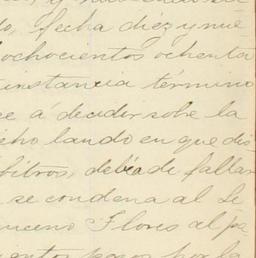 do, fecha diez y nue
ochocientos ochenta
instancia término
se á decidir sobre la
cho laudo en que dis
bitros, debia de fallar
se condena al Se
Flores al pa
pesos por la